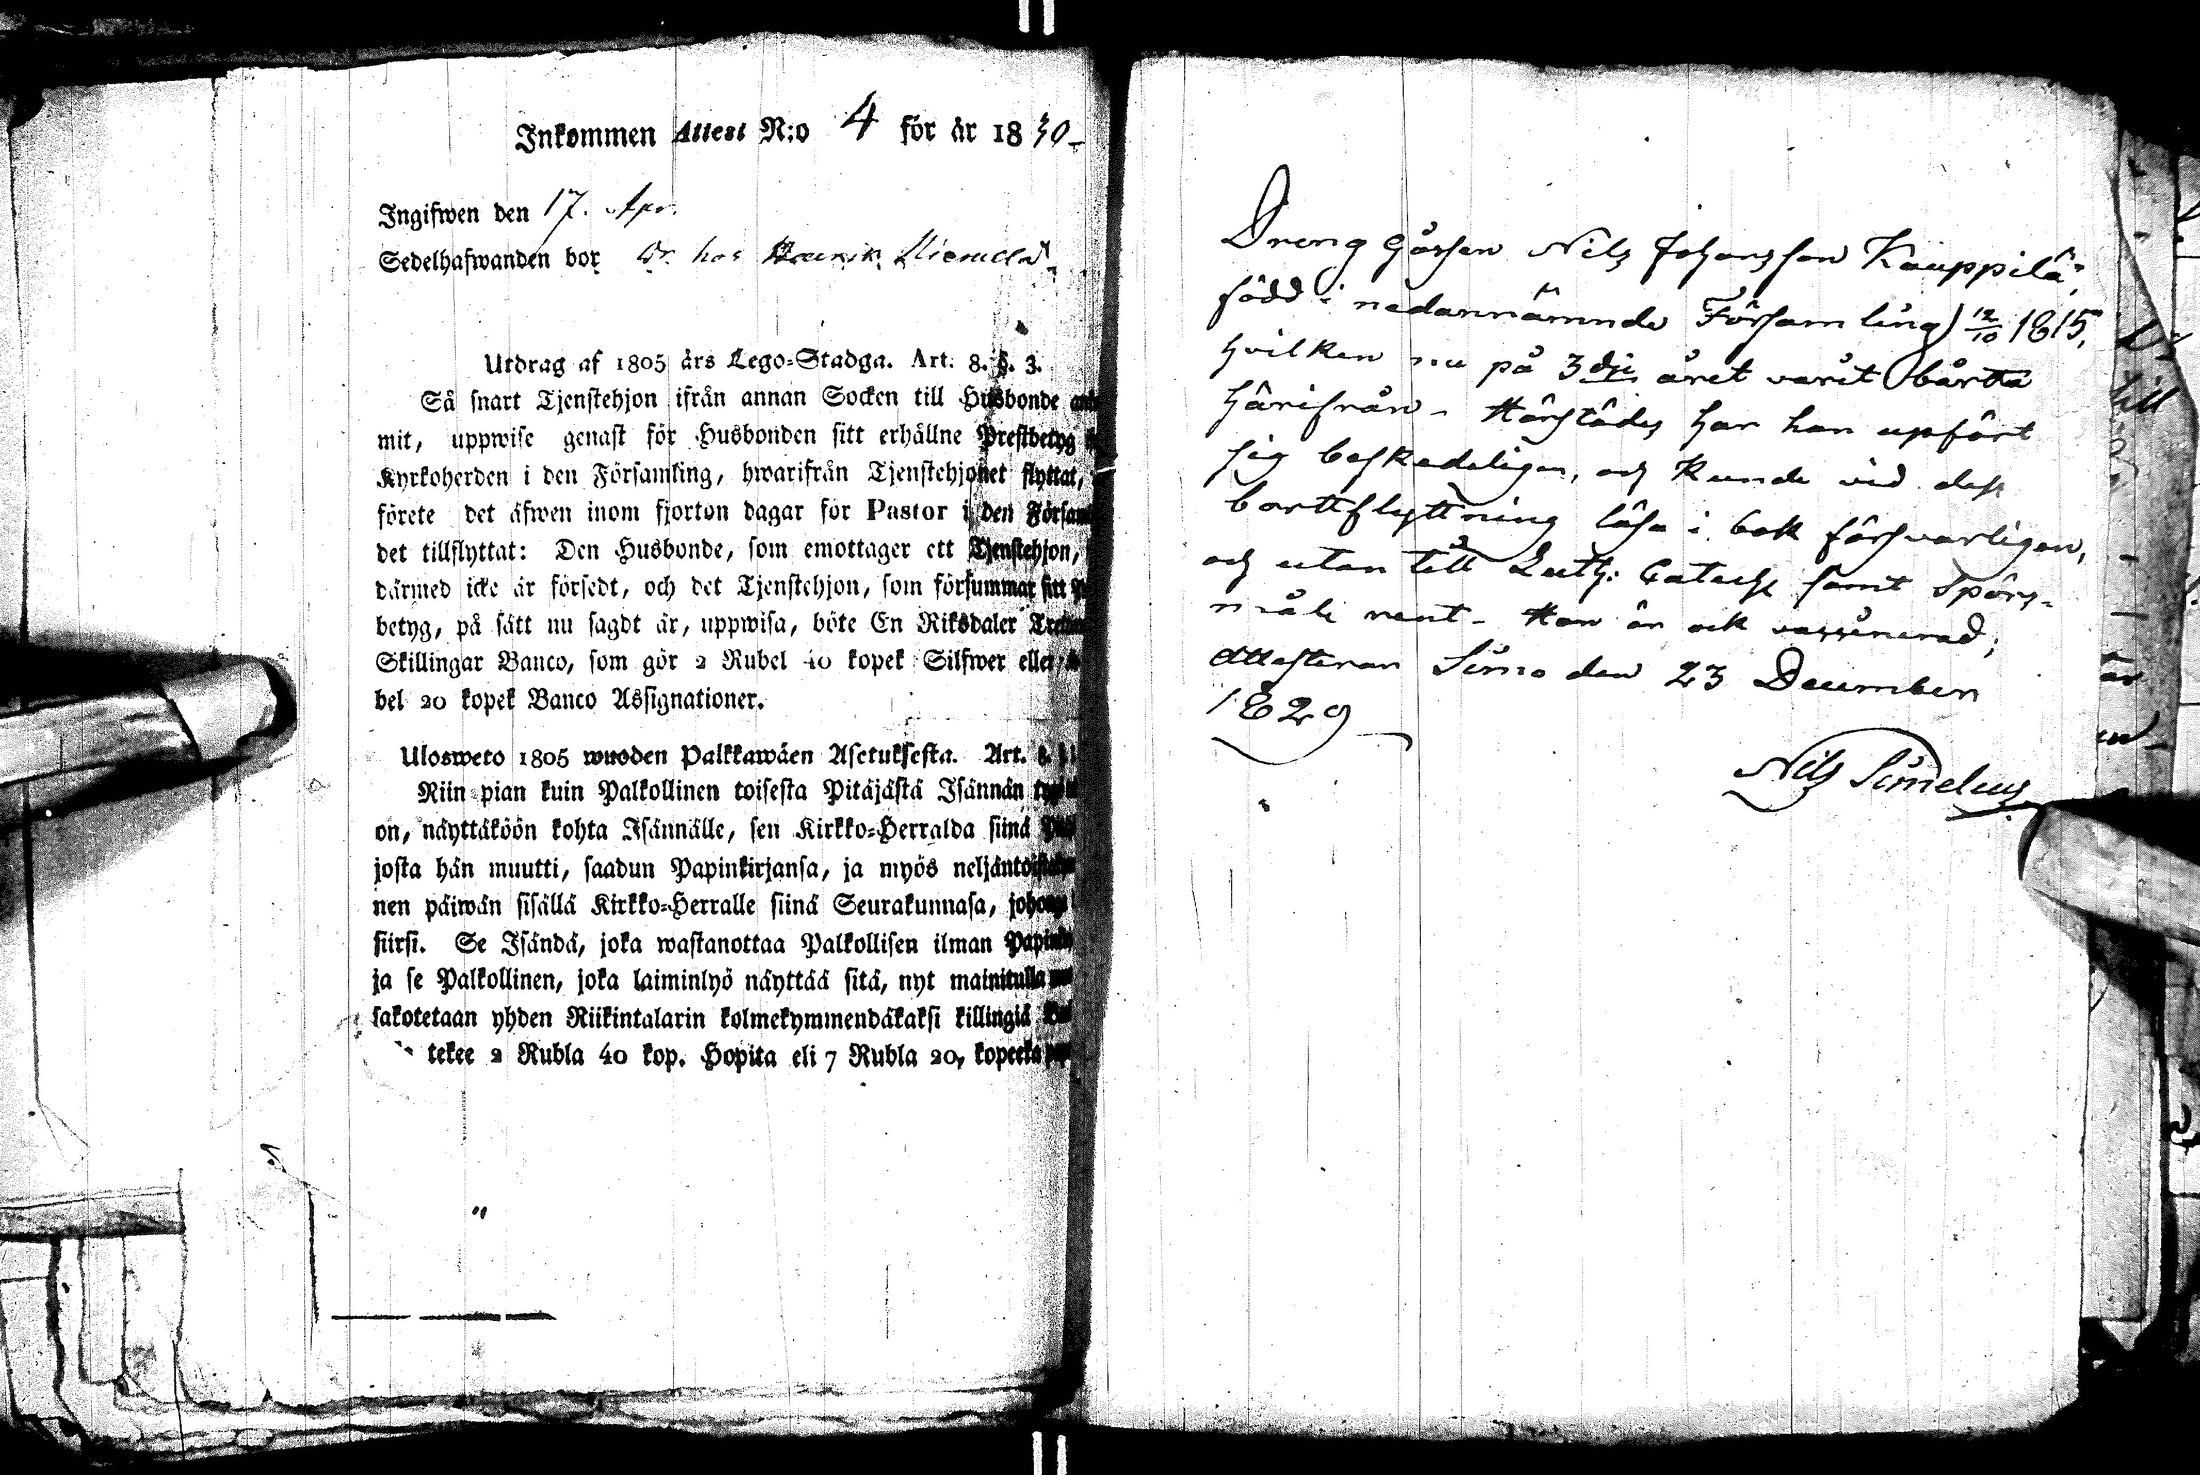 Inkommen Attest N:o 4 för år 1830
Ingifwen den 17. Apr.
Sedelhafwanden bor Dr. hos Henrik
Utdrag af 1805 års Lego=Stadga. Art. 8. §. 3.
Så snart Tjenstehjon ifrån annan Socken till Husbonde
mit, uppwise genast för Husbonden sitt erhållne Prestbetyg
Kyrkoherden i den Församling, hwarifrån Tjenstehjonet flyttat,
förete det äfwen inom fjorton dagar för Pastor i den
det tillflyttat: Den Husbonde, som emottager ett Tjenstehjon,
därmed icke är försedt, och det Tjenstehjon, som försummar sitt
betyg, på sätt nu sagdt är, uppwisa, böte En Riksdaler
Skillingar Banco, som gör 2 Rubel 40 kopek Silfwer eller
bel 20 kopek Banco Assignationer.
Ulosweto 1805 wuoden Palkkawäen Asetuksesta. Art. 8.
Niin pian kuin Palkollinen toisesta Pitäjästä Isännän
on, näyttäköön kohta Isännälle, sen Kirkko=Herralda siinä
josta hän muutti, saadun Papinkirjansa, ja myös
nen päiwän sisällä Kirkko=Herralle siinä Seurakunnasa,
siirsi. Se Isändä, joka wastanottaa Palkollisen ilman
ja se Palkollinen, joka laiminlyö näyttää sitä, nyt mainitulla
sakotetaan yhden Riikintalarin kolmekymmendäkaksi killingiä
tekee 2 Rubla 40 kop. Hopita eli 7 Rubla 20, kopeeka
Dreng Gåssen Nils Johansson Kauppila,
född i nedannämnde Församling) 12/10 1815,
hvilken nu på 3dje året varit bårta
härifrån - Härstädes har han upfört
sig beskedeligen, och kunde vid dess
bortflyttning läsa i bok försvarligen,
och utan till Luth: Cateches samt Spörs-
måli rent - Han är ock vaccinerad;
Attesteras Simo den 23 December
1829
Nils Simelius